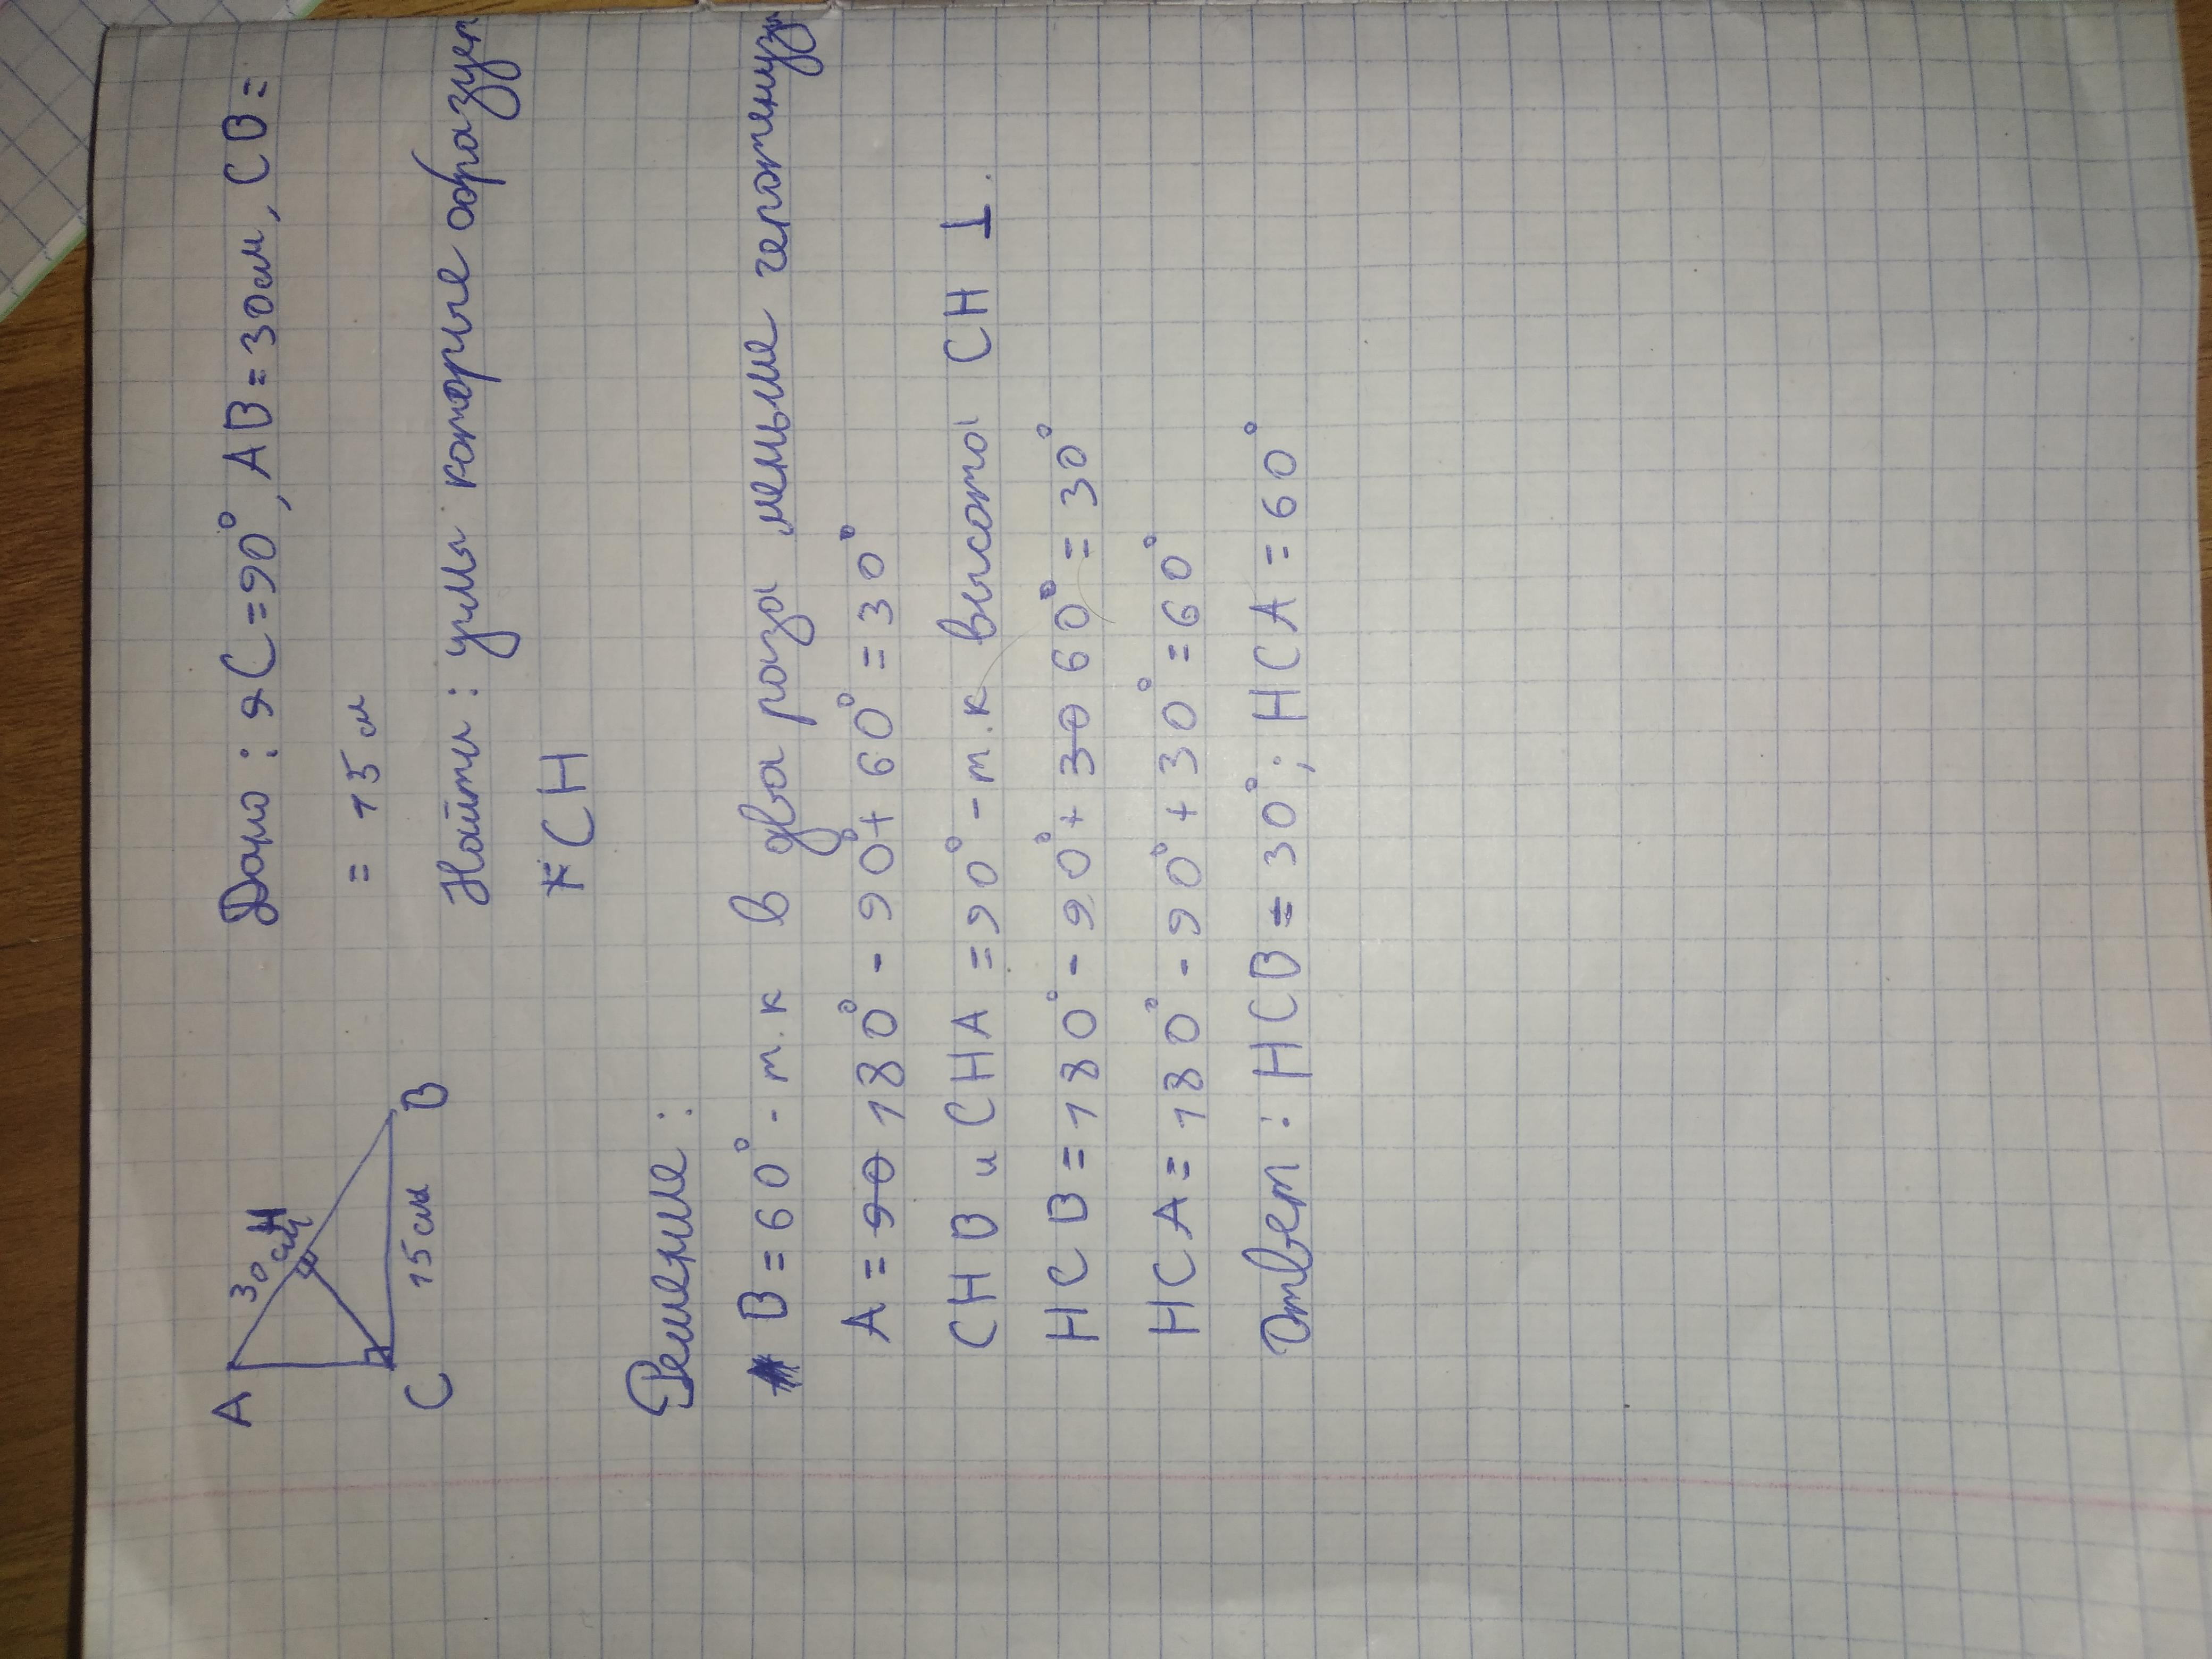 A
30 см
H
C
15 см
B
Дано : ∢C=90°, AB=30см, CB=
= 15 см
Найти : углы которые образует
CH
Решение :
B=60° - т.к в два раза меньше гепотинузы
A= 90 180° - 90°+ 60° = 30°
CHB и CHA = 90° - т.к высота CH ⊥.
HCB = 180° - 90°+ 30 60° = 30°
HCA= 180° - 90° + 30° = 60°
Ответ : HCB = 30°; HCA = 60°